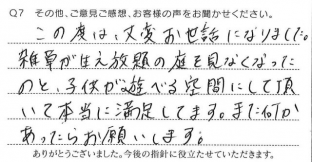 Q7 その他、ご意見ご感想、お客様の声をお聞かせください。
この度は、大変お世話になりました。
雑草が生え放題の庭を見なくなった
のと、子供が遊べる空間にして頂
いて本当に満足してます。また何か
あったらお願いします。
ありがとうございました。今後の指針に役立たせていただきます。